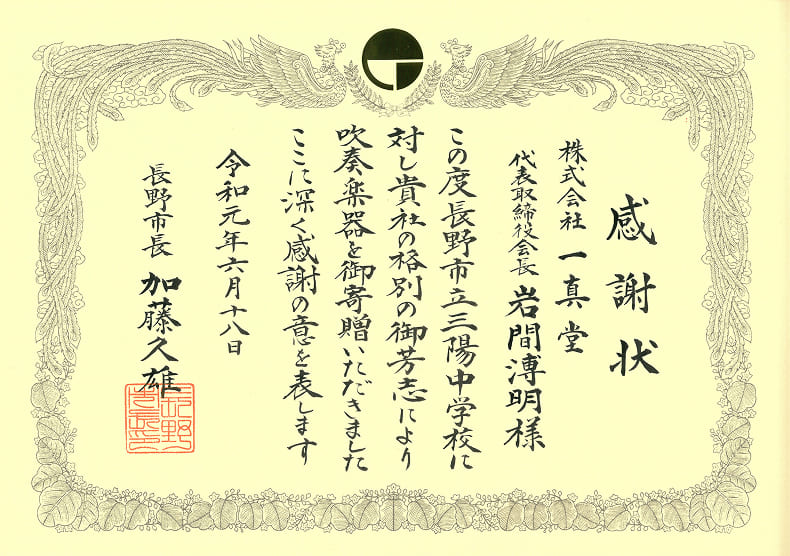 感謝状
株式会社 一真堂
代表取締役会長 岩間溥明様
この度長野市立三陽中学校に
対し貴社の格別の御芳志により
吹奏楽器を御寄贈いただきました
ここに深く感謝の意を表します
令和元年六月十八日
長野市長 加藤久雄
長野市長之印